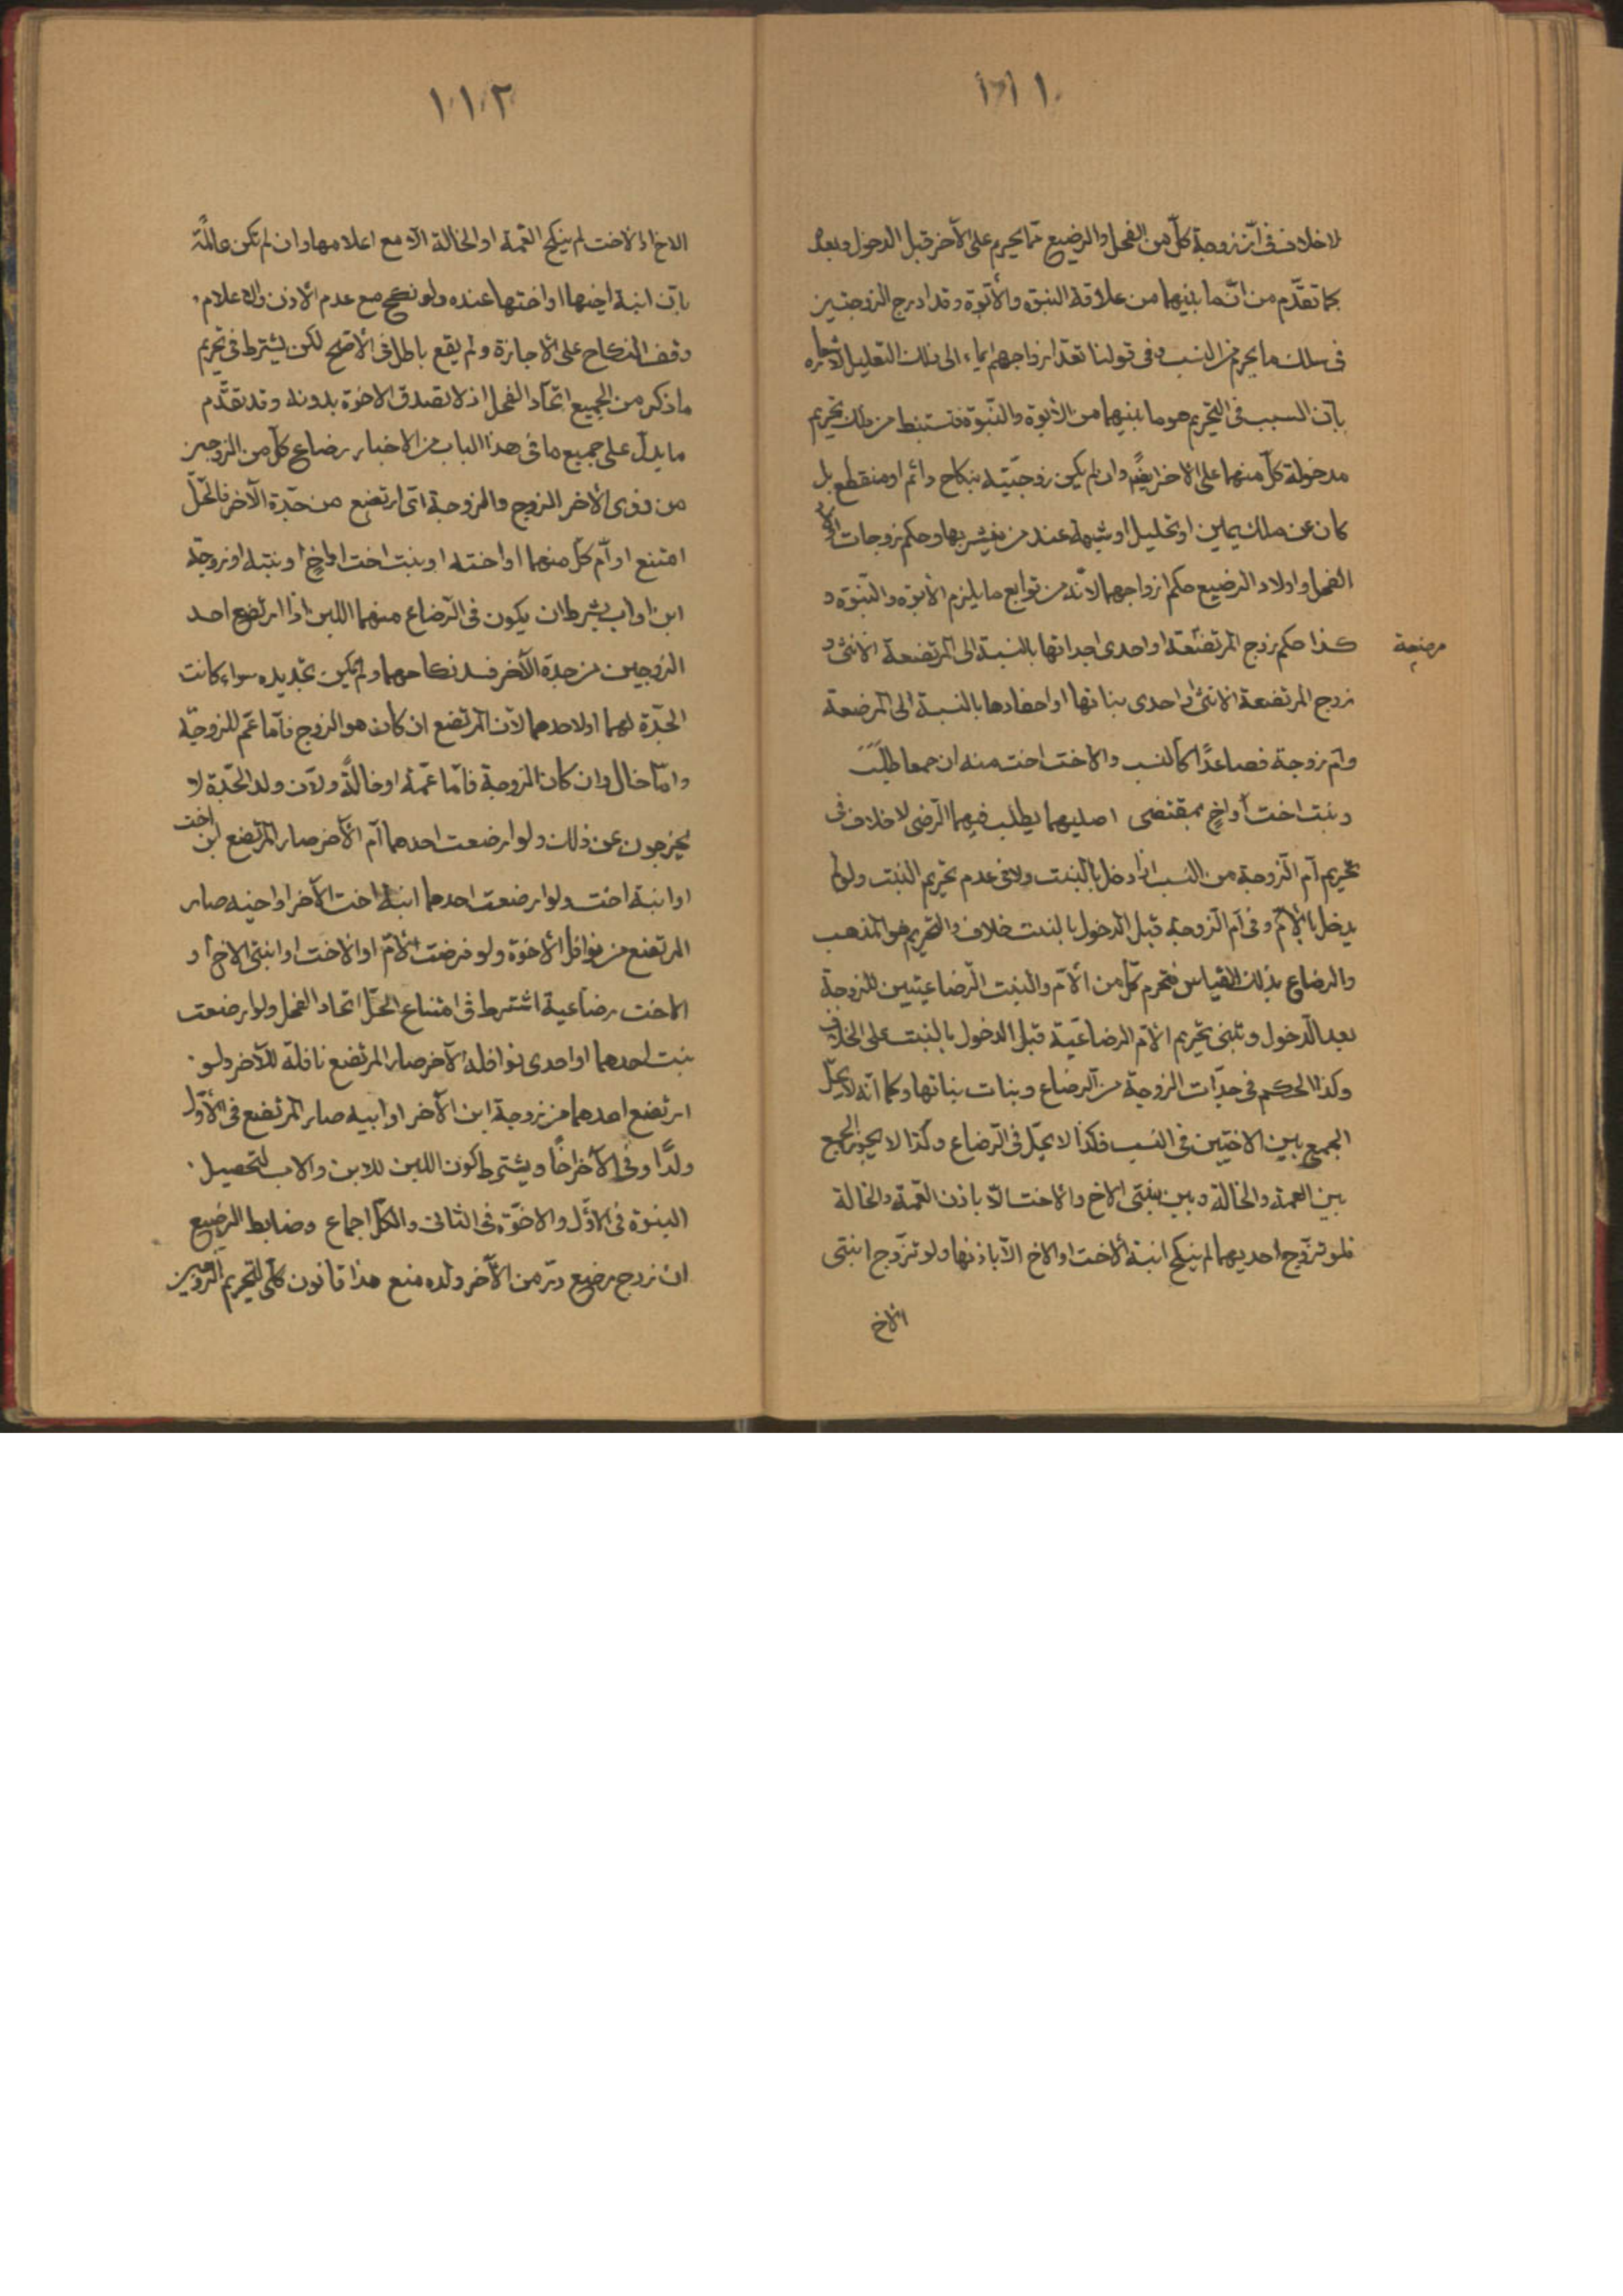 ١١١
لا خلاف فى انّ زوجة كلّ من الفحل والرضيع ممّا يحرم على الآخر قبل الدخول وبعده
بما تقدّم من انّ ما بينهما من علاقة البنوّة والأبوّة وقد ادرج الزوجتين
فى سلك ما يحرم من النسب وفى قولنا تعدّ ازواجهم ايماء الى ذلك التعليل
بانّ السبب فى التحريم هو ما بينهما من الأبوة والبنّوة فتستنبط من ذلك تحريم
مدخولة كلّ منهما على الاخر ايضًا وان لم يكن زوجيّته بنكاح دائم او منقطع بل
كان عن ملك يمين او تحليل او شبهة عند من ينشر بها وحكم زوجات اولاد
الفحل واولاد الرضيع حكم ازواجهما لانّه من توابع ما يلزم الأبوّة والبنّوة و
كذا حكم زوج المرتضعة او احدى جداتها بالنسبة الى المرتضعة الانثى و
مرضعة
زوج المرتضعة الانثى او احدى بناتها او احفادها بالنسبة الى المرضعة
وام زوجة فصاعدًا كالنسب والاخت اخت منه ان جمعا طلّبت
وبنت اخت أو اخٍ بمقتضى اصليهما يطلب فيهما الرّضى لا خلاف فى
تحريم أم الزوجة من النسب اذا دخل بالبنت ولا فى عدم تحريم البنت ولو لم
يدخل بالأمّ وفى أم الزوجة قبل الدخول بالبنت خلاف والتحريم هو المذهب
والرضاع بذلك القياس فتحرم كلّ من الأمّ والبنت الرّضاعيتين للزوجة
بعد الدّخول وتبنى تحريم الأمّ الرضاعيّة قبل الدخول بالبنت على الخلاف
وكذا الحكم فى جدّات الزوجة من الرضاع وبنات بناتها وكما انّه لا يحلّ
الجمع بين الاختين فى النسب فكذا لا يحلّ فى الرّضاع وكذا لا يجوز الجمع
بين العمة والخالة وبين بنتى الاخ والاخت الّا باذن العمّة والخالة
فلو تزوّج احديهما لم ينكح ابنة الاخت او الاخ الّا باذنها ولو تزوّج ابنتى
الاخ
١١٢
الاخ او الاخت لم ينكح العمّة او الخالة الّا مع اعلامها وان لم تكن عالمة
بانّ ابنة اخيها او اختها عنده ولو نكح مع عدم الاذن والاعلام
وقف النكاح على الاجازة ولم يقع باطلا فى الأصّح لكن يشترط فى تحريم
ما ذكر من الجميع اتّحاد الفحل اذ لا تصدق الاخوة بدونه وقد تقدّم
ما يدلّ على جميع ما فى هذا الباب من الاخبار رضاع كلّ من الزوجين
من ذوى الأخر الزوج والزوجة اىّ ارتضع من جدّة الآخر فالحلّ
امتنع او أم كلّ منهما او اخته او بنت اخت او اخٍ او بنته او زوجة
ابن او اب بشرط ان يكون فى الرّضاع منهما اللبن اذا ارتضع احد
الزوجين من جدة الآخر فسد نكاحهما ولم يمكن تجديده سواء كانت
الجدّة لهما او لاحدهما لأن المرتضع ان كان هو الزوج فأما عمّ للزوجة
وامّا خال وان كان الزوجة فامّا عمّة او خالةً ولأن ولد الجدّة لا
يخرجون عن ذلك ولو ارضعت احدهما أم الآخر صار المرتضع ابن اخت
او ابنة اخت ولو ارضعت احدهما ابنة اخت الآخر او اخيه صار
المرتضع من نوافل الاخوة ولو فرضت الأمّ او الاخت او ابنتى الاخ أو
الاخت رضاعية اشترط فى امتناع الحلّ اتحاد الفحل ولو ارضعت
بنت احدهما او احدى نوافله الآخر صار المرتضع نافلة للآخر ولو
ارتضع احدهما من زوجة ابن الآخر او ابيه صار المرتضع فى الأوّل
ولدًا وفى الآخر اخًا ويشترط كون اللبن للابن والاب لتحصيل
البنوة فى الاوّل والاخوّة فى الثانى والكلّ اجماع وضابط الرضيع
ان زوج رضيع من الآخر ولده منع هذا قانون كلّى لتحريم الزوجين